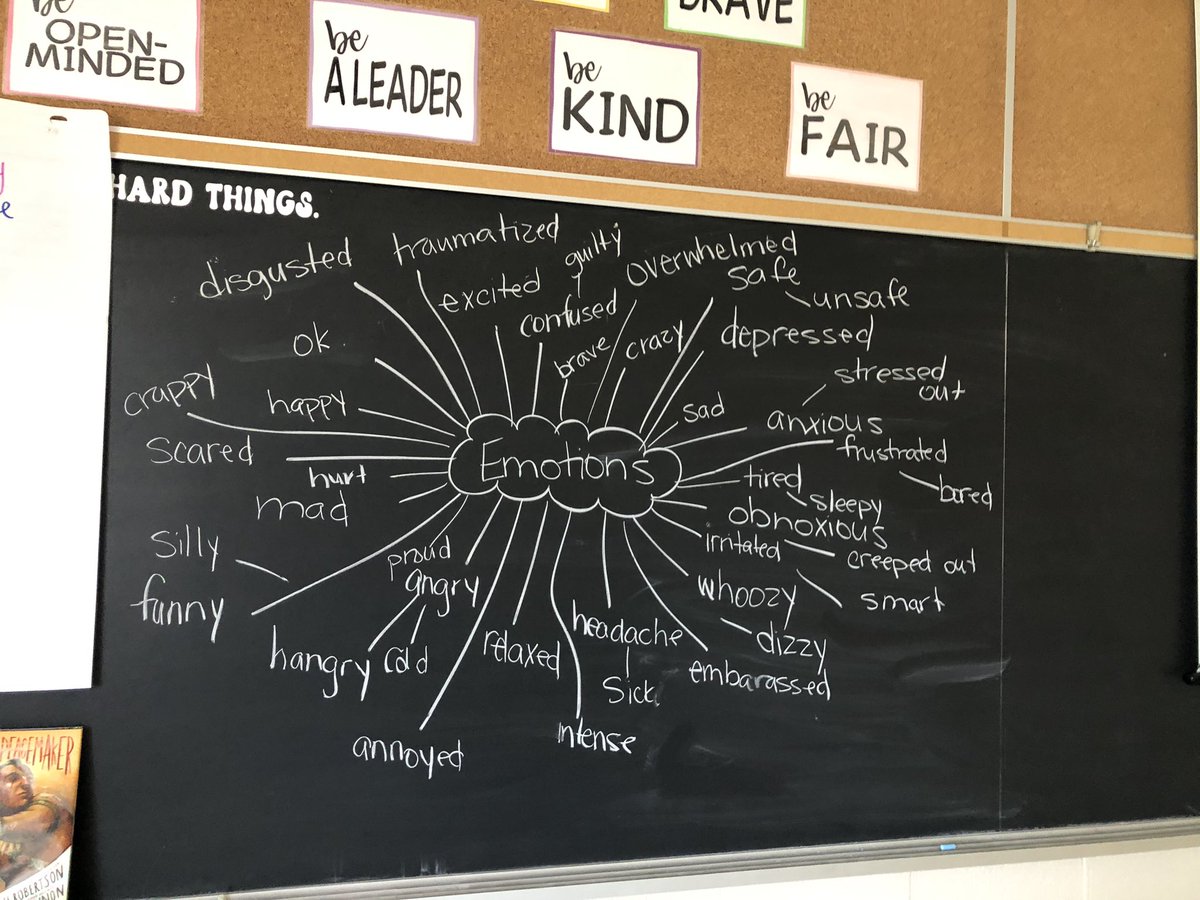 be
OPEN-
MINDED
be
A LEADER
be
KIND
BRAVE
be
FAIR
HARD THINGS.
disgusted
traumatized
excited
guilty
confused
brave
overwhelmed
crazy
safe
unsafe
depressed
stressed
out
sad
anxious
frustrated
bored
tired
sleepy
obnoxious
creeped out
irritated
smart
whoozy
dizzy
embarassed
headache
sick
intense
relaxed
annoyed
proud
angry
hangry
cold
silly
funny
mad
hurt
scared
crappy
happy
ok
Emotions
PEACEMAKER
ROBERTSON